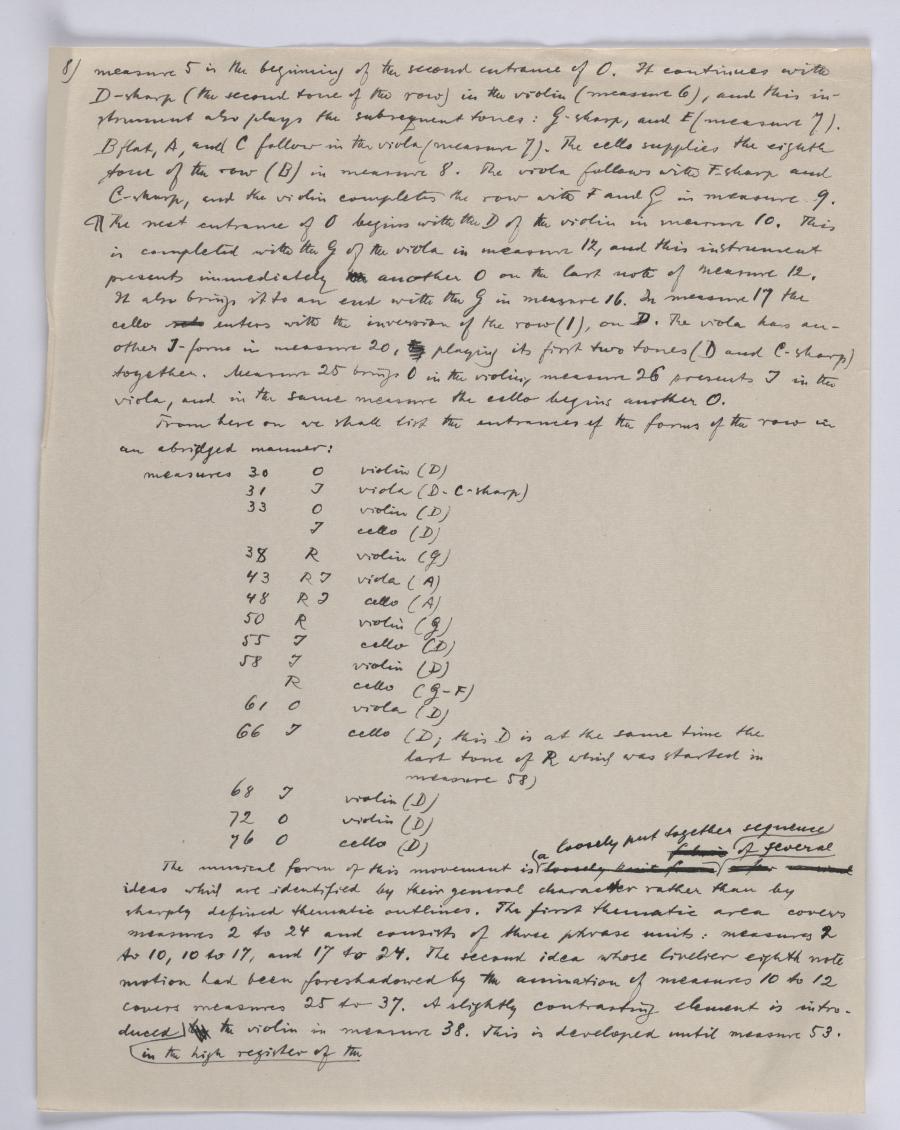 8) measure 5 is the beginning of the second entrance of O. It continues with
D-sharp (the second tone of the row) in the violin (measure 6), and this in-
strument also plays the subsequent tones: G-sharp, and E (measure 7).
B flat, A, and C follow in the viola (measure 7). The cello supplies the eighth
tone of the row (B) in measure 8. The viola follows with F-sharp and
C-sharp, and the violin completes the row with F and G in measure 9.
¶ The next entrance of O begins with the D of the violin in measure 10. This
is completed with the G of the viola in measure 12, and this instrument
presents immediately another O on the last note of measure 12.
It also brings it to an end with the G in measure 16. In measure 17 the
cello enters with the inversion of the row (I), on D. The viola has an-
other I-form in measure 20, playing its first two tones (D and C-sharp)
together. Measure 25 brings O in the violin, measure 26 presents I in the
viola, and in the same measure the cello begins another O.
From here on we shall list the entrances of the forms of the row in
an abridged manner:
measures 30 O violin (D)
31 I viola (D-C-sharp)
33 O violin (D)
I cello (D)
38 R violin (G)
43 RI viola (A)
48 RI cello (A)
50 R violin (G)
55 I cello (D)
58 I violin (D)
R cello (G-F)
61 O viola (D)
66 I cello (D; this D is at the same time the
last tone of R which was started in
measure 58)
68 I violin (D)
72 O violin (D)
76 O cello (D)
(a loosely put together sequence
of several
The musical form of this movement is loosely knit
ideas which are identified by their general character rather than by
sharply defined thematic outlines. The first thematic area covers
measures 2 to 24 and consists of three phrase units: measures 2
to 10, 10 to 17, and 17 to 24. The second idea whose livelier eighth note
motion had been foreshadowed by the animation of measures 10 to 12
covers measures 25 to 37. A slightly contrasting element is intro-
duced the violin in measure 38. This is developed until measure 53.
(in the high register of the